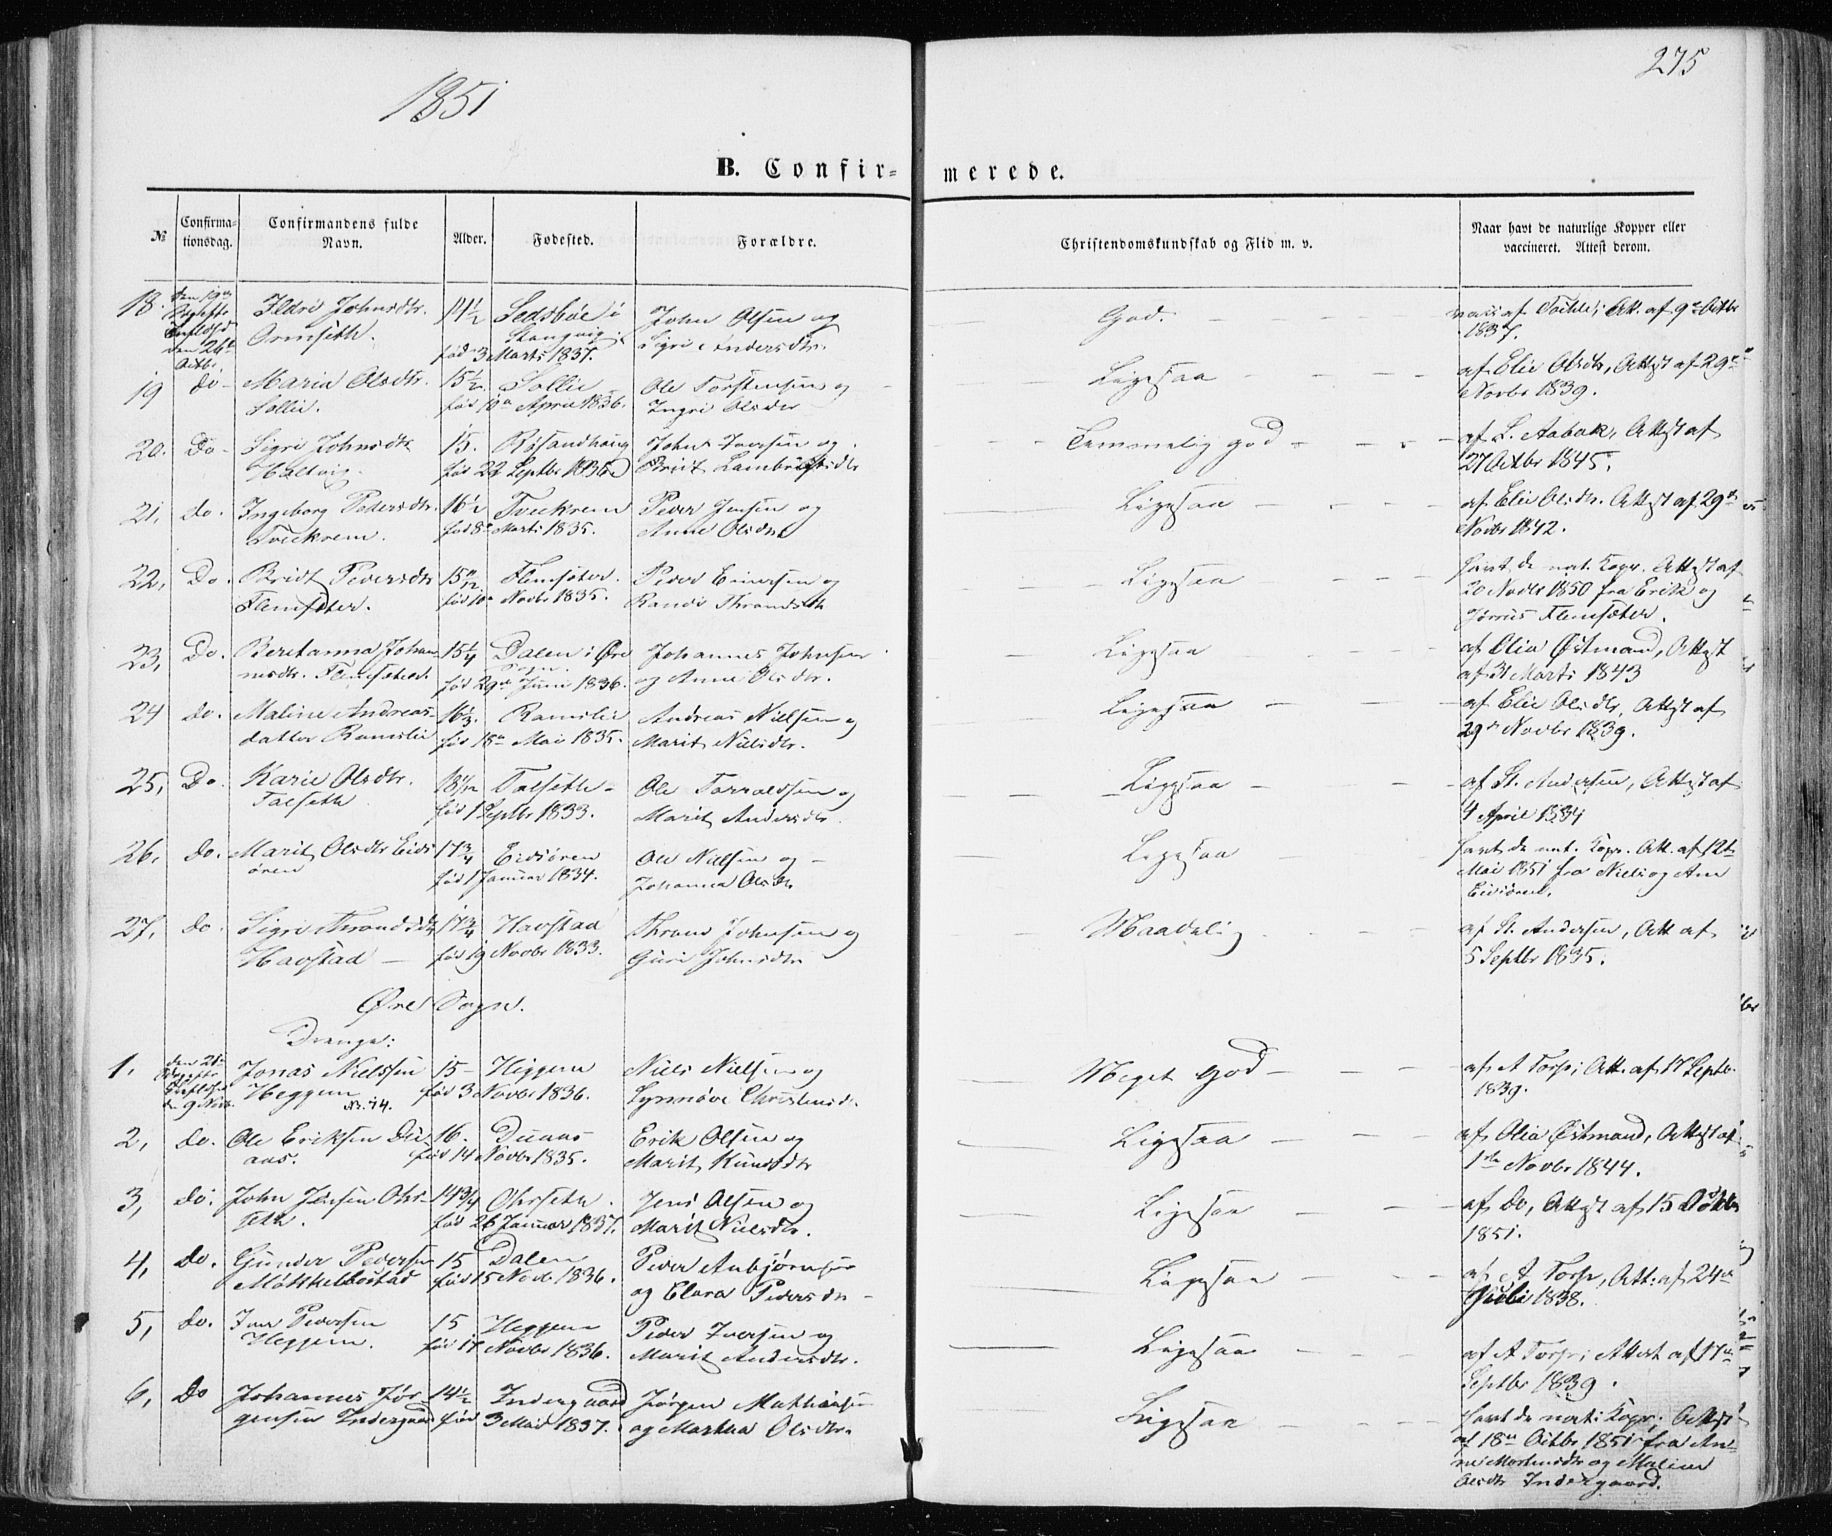 1851
275
B. Confir- merede.
№
Confirma-
tionsdag.
Confirmandens fulde
Navn.
Alder.
Fødested.
Forældre.
Christendomskundskab og Flid m. v.
Naar havt de naturlige Kopper eller
vaccineret. Attest derom.
18. Ildri Johnsdtr. 14½ i John Olsen og God. Att. af 9de Octbr
Ormseth. Stangvig Sigri Andersdtr. 1837.
den 24de fød 3 Marts 1837.
Octbr.
19 do- Maria Olsdtr. 15½ Sollie Ole Torstensen og Ligesaa af Elie Olsdtr, Attest af 29de
Sollie. fød 10de April 1836. Ingri Olsdtr Novbr 1839.
20. Do- Sigri Johnsdtr 15. John Iversen og Temmelig god af L. Aabak, Attest af
fød 22 Septbr 1836 Brit 27 Octbr 1845.
21, do. Ingeborg Pedersdtr. 16½ Tveekrem Peder Jensen og Ligesaa af Elie Olsdtr. Attest af 29de
Tveekrem. fød 8de Marts 1835. Anne Olsdtr Novbr 1842.
22, Do. Bridt Pedersdtr 15 11/12 Flemsæter. Peder Einersen og Ligesaa havt de nat. Kopr. Attest af
Flemsæter. fød 10de Novbr 1835. Randi Throndsdtr 20 Novbr 1850 fra Erik og
Flemsæter.
23, Do. Beritanna Johan- 15¼ Dalen i Øre Johannes Johnsen Ligesaa af Olia Østmand, Attest
nesdtr. Flemsæter. Sogn. og Anne Olsdtr. af 31 Marts 1843
fød 29de Juni 1836.
24 do. Maline Andreas- 16⅓. Ramslie Andreas Nielsen og Ligesaa af Elie Olsdtr, Attest af
datter Ramslie fød 18de Mai 1835. Marit Nielsdtr. 29de Novbr 1839.
25, Do. Karie Olsdtr. 18 1/12 Talseth- Ole Torvaldsen og Ligesaa af St. Andersen, Attest af
Talseth fød 1 Septbr 1833. Marit Andersdtr. 4 April 1834
26, Do. Marit Olsdtr Eids- 17¾ Eidsøren Ole Nielsen og - Ligesaa havt de nat. Kopr. Att. af 12te
øren fød 1 Januar 1834. Johanna Olsdtr Mai 1851 fra Niels og Ane
Eidsøren.
27, do. Sigri Thronds dtr 17¾ Havstad Thrond Johnsen og Maadelig af St. Andersen, Att af
Havstad fød 19 Novbr 1833. Guri Johnsdtr 5 Septbr 1835.
Øre Sogn.
Drenge:
1. den 21de Jonas Nielssen 15- Heggem Niels Nielsen og Meget god- af A Torp, Att. af 17 Septbr.
Heggem fød 3 Novbr 1836. Synnøve Christensdtr. 1839.
den 9 Novbr. Nr. 14.
2, do. Ole Eriksen Du- 16. Duaas Erik Olsen og Ligesaa af Olia Østmand, Attest af
aas. fød 14 Novbr 1835. Marit Knudsdtr 1ste Novbr 1844.
3, do. John Jensen Ohr- 14¾ Ohrseth Jens Olsen og Ligesaa af Do, Attest af 15 Octbr
seth. fød 26 Januar 1837. Marit Nielsdtr. 1851.
4, do. Gunder Pedersen 15 Dalen Peder Anbjørnsen Ligesaa af A Torp, Att: af 24de
Møkkelbostad fød 15 Novbr 1836. og Clara Pedersdtr - Juli 1838.
5, do. Iver Pedersen 15 Heggem Peder Iversen og Ligesaa af A Torp, Attest af 17de
Heggem. fød 17 Novbr 1836. Marit Andersdtr. Septbr 1839.
6, Do Johannes Jør- 14½ Indergaard Jørgen Mathiasen Ligesaa havt de nat. Kopr. Attest
gensen Indergaard fød 3 Mai 1837. og Martha Olsdtr. af 18de Octbr 1851 fra An-
ne Mortensdtr og Maline
Olsdtr Indergaard.